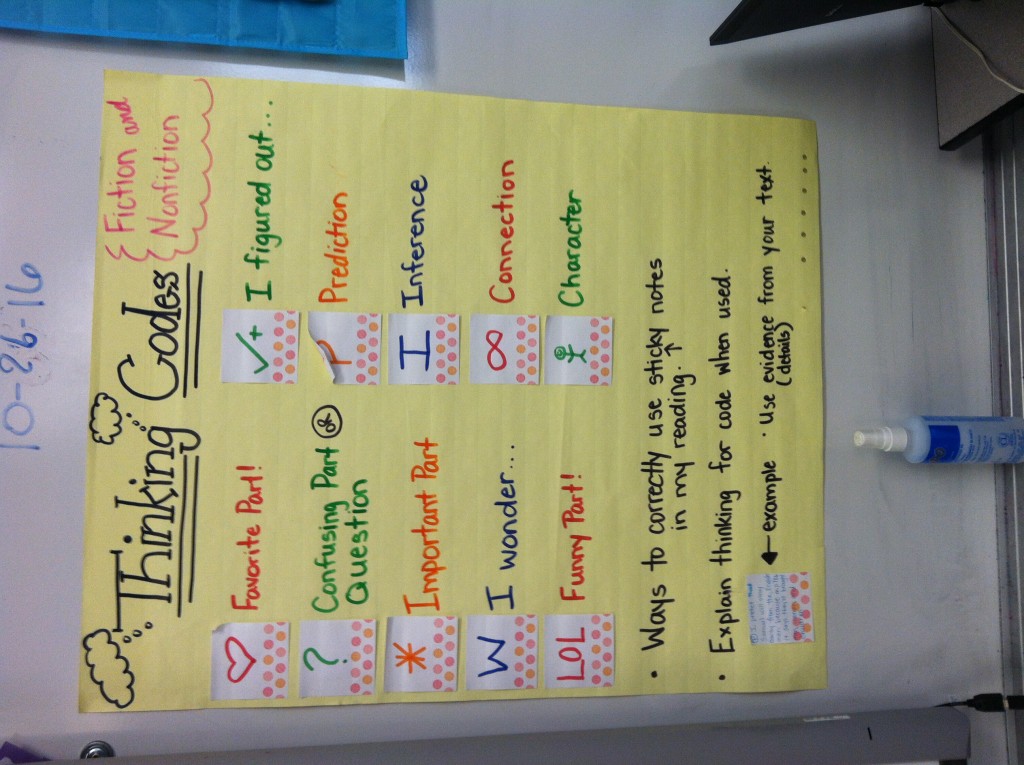 10-26-16
Thinking Codes
{Fiction and
{Nonfiction
♡ Favorite Part!
? Confusing Part &
Question
* Important Part
W I wonder...
LOL Funny Part!
✓+ I figured out...
P Prediction
I Inference
∞ Connection
Character
• Ways to correctly use sticky notes
in my reading. ↑
• Explain thinking for code when used.
← example · Use evidence from your text.
(details)